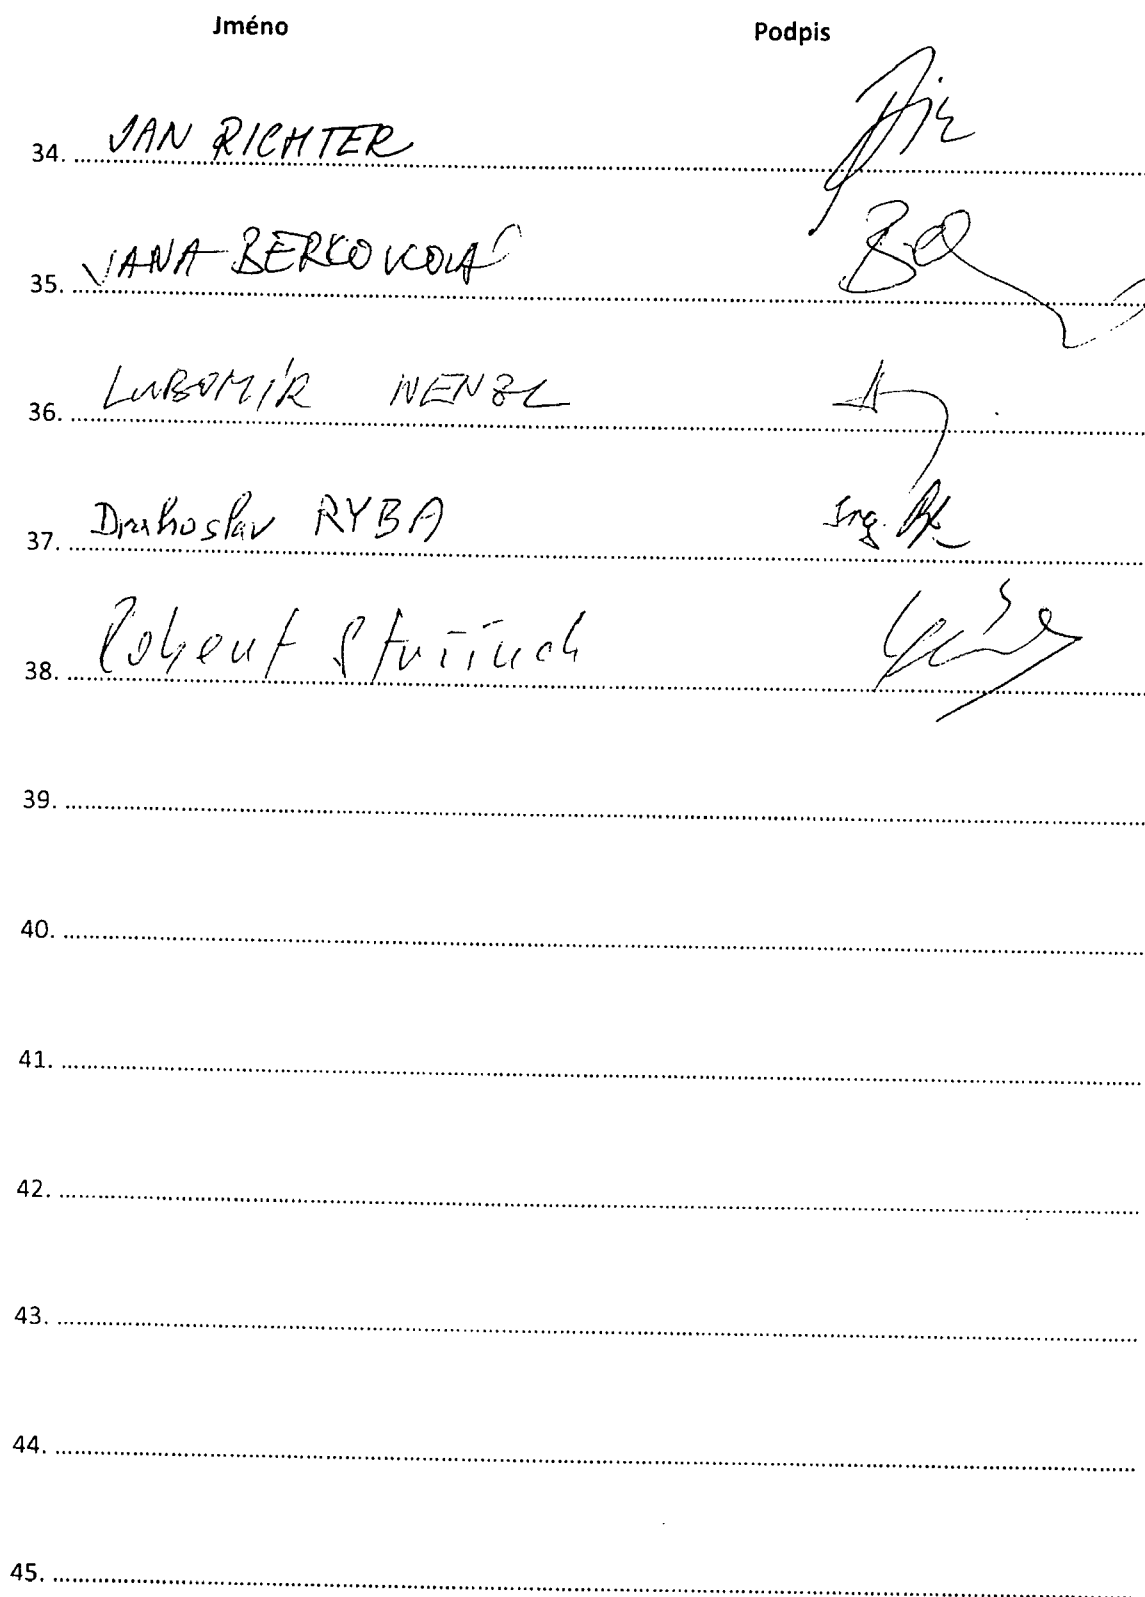 Jméno Podpis
34. JAN RICHTER
35. JANA BERKOVCOVÁ
36. LUBOMÍR WENZL
37. Drahoslav RYBA Ing.
38. Robert
39.
40.
41.
42.
43.
44.
45.